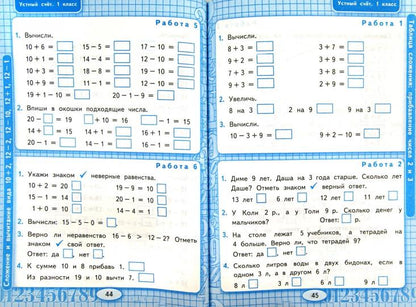 Устный счёт. 1 класс
Сложение и вычитание вида 10 + 2, 12 - 2, 12 - 10, 12 + 1, 12 - 1
Работа 5
1. Вычисли.
10 + 6 = 15 - 5 = 17 - 10 =
10 + 4 = 14 - 4 = 14 - 10 =
10 + 3 = 18 - 8 = 19 - 10 =
10 + 1 = 13 - 3 = 11 - 10 =
19 - 10 + 1 = 20 - 1 - 9 =
2. Впиши в окошки подходящие числа.
20 - = 19 + 10 = 16 - 1 = 15
14 + = 15 14 + 1 = 16 + 1 =
20 - 1 = 14 - 1 = 16 - 1 =
Работа 6
1. Укажи знаком ✓ неверные равенства.
10 + 2 = 20 19 - 9 = 10
15 - 1 = 14 20 - 1 = 10
1 + 0 = 10 14 - 4 = 10
2. Вычисли: 15 - 5 - 0 =
3. Верно ли неравенство 16 - 6 > 12 - 2? Отметь
знаком ✓ свой ответ.
Ответ: да, нет.
4. К сумме 10 и 8 прибавь 1.
Из разности 19 и 10 вычти 7.
44
Устный счёт. 1 класс
Таблица сложения: прибавление чисел 2 и 3
Работа 1
1. Вычисли.
8 + 3 = 3 + 7 =
9 + 2 = 3 + 8 =
7 + 3 = 2 + 9 =
9 + 3 = 2 + 8 =
2. Увеличь.
8 на 3 2 на 9 9 на 3
3. Вычисли.
10 - 3 + 9 = 9 + 2 - 10 =
Работа 2
1. Диме 9 лет. Даша на 3 года старше. Сколько лет
Даше? Отметь знаком ✓ верный ответ.
13 лет 6 лет 12 лет 11 лет
2. У Коли 2 р., а у Толи 9 р. Сколько денег у
мальчиков? Ответ: р.
3. На столе лежат 5 учебников, а тетрадей на
4 больше. Верно ли, что тетрадей 9?
Ответ: да, нет.
4. Сколько литров воды в двух бидонах, если в
одном 3 л, а в другом 6 л?
9 л 8 л
45